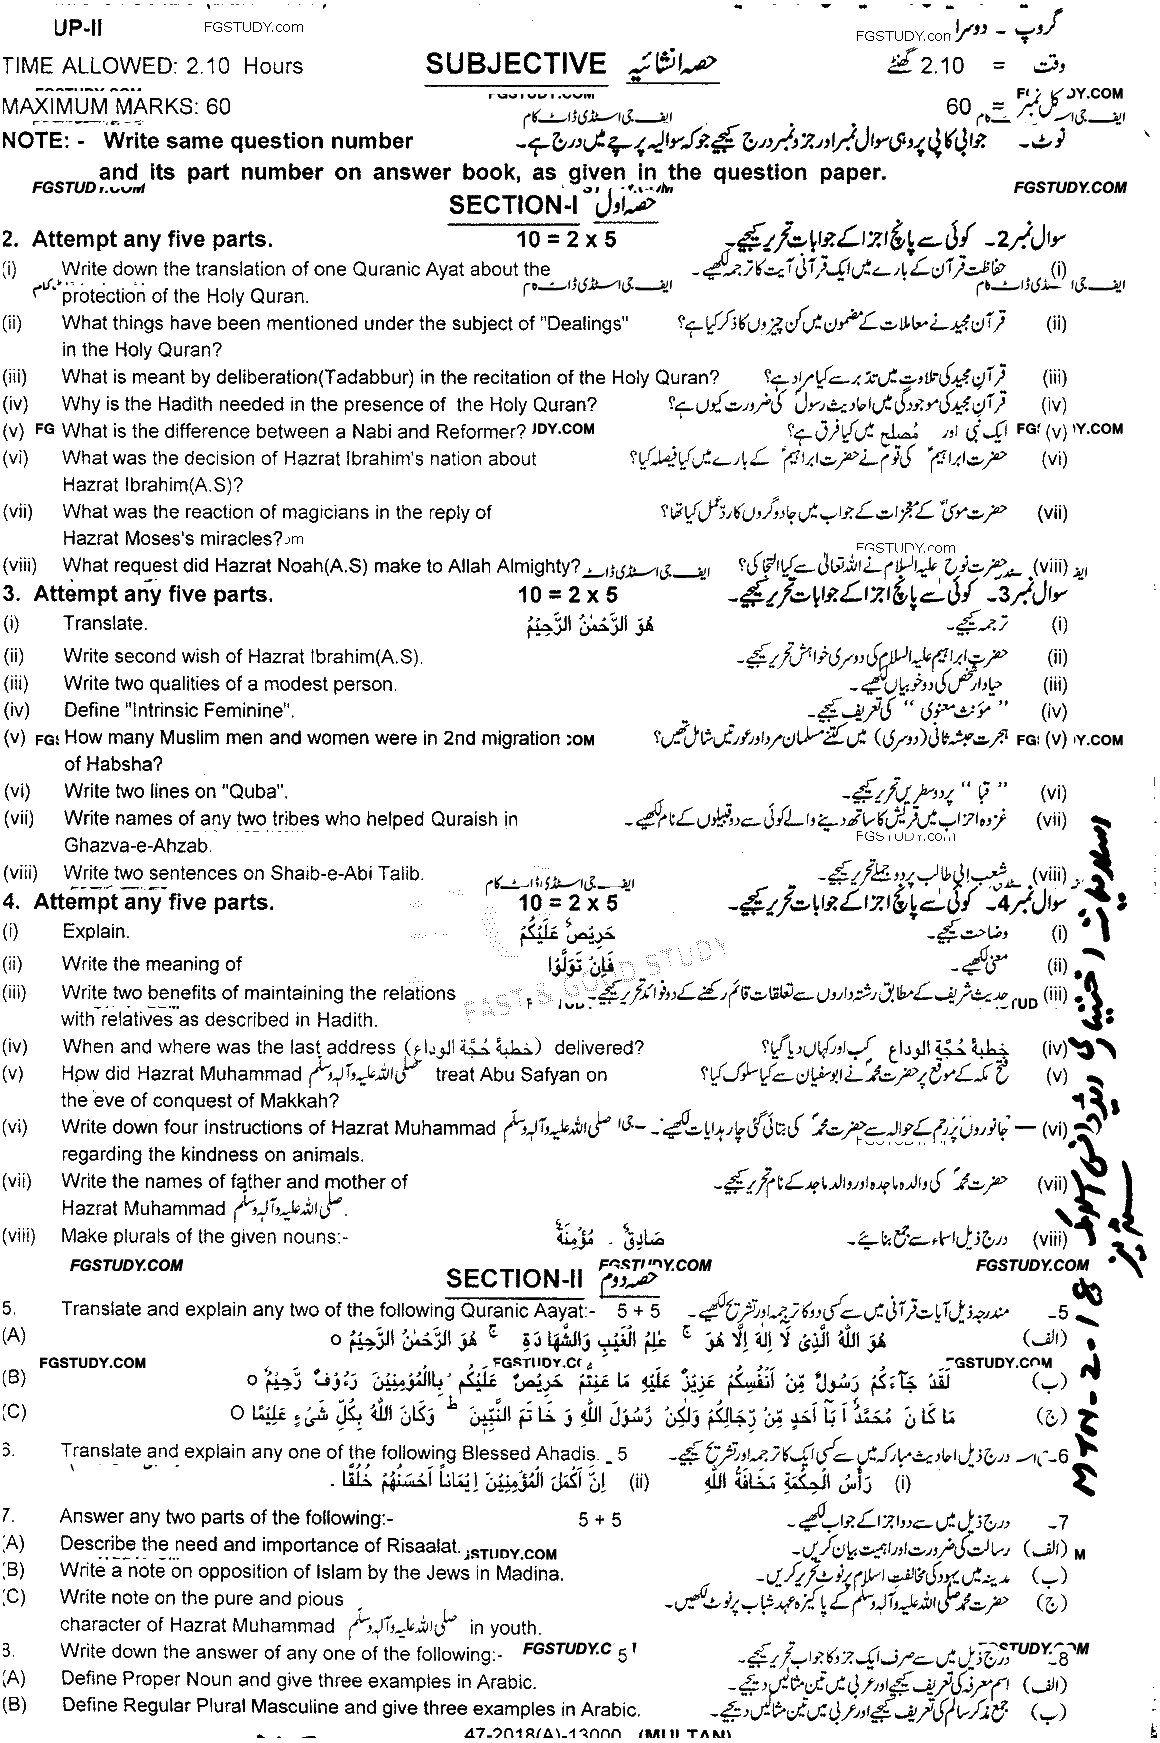 UP-II FGSTUDY.com FGSTUDY.con گروپ – دوسرا
TIME ALLOWED: 2.10 Hours SUBJECTIVE حصہ انشائیہ وقت = 2.10 گھنٹے
MAXIMUM MARKS: 60 ایف جی اسٹڈی ڈاٹ کام کل نمبر = 60
NOTE: - Write same question number نوٹ۔ جوابی کاپی پر وہی سوال نمبر اور جزو نمبر درج کیجیے جو کہ سوالیہ پرچے میں درج ہے۔
and its part number on answer book, as given in the question paper.
FGSTUDY.COM FGSTUDY.COM
SECTION-I حصہ اول
2. Attempt any five parts. 10 = 2 x 5 سوال نمبر 2۔ کوئی سے پانچ اجزا کے جوابات تحریر کیجیے۔
(i) Write down the translation of one Quranic Ayat about the حفاظت قرآن کے بارے میں ایک قرآنی آیت کا ترجمہ لکھیے۔ (i)
protection of the Holy Quran. ایف جی اسٹڈی ڈاٹ کام
(ii) What things have been mentioned under the subject of "Dealings" قرآن مجید نے معاملات کے مضمون میں کن چیزوں کا ذکر کیا ہے؟ (ii)
in the Holy Quran?
(iii) What is meant by deliberation(Tadabbur) in the recitation of the Holy Quran? قرآن مجید کی تلاوت میں تدبر سے کیا مراد ہے؟ (iii)
(iv) Why is the Hadith needed in the presence of the Holy Quran? قرآن مجید کی موجودگی میں احادیث رسول کی ضرورت کیوں ہے؟ (iv)
(v) FG What is the difference between a Nabi and Reformer? JDY.COM ایک نبی اور مُصلح میں کیا فرق ہے؟ FG (v) IY.COM
(vi) What was the decision of Hazrat Ibrahim's nation about حضرت ابراہیم کی قوم نے حضرت ابراہیم کے بارے میں کیا فیصلہ کیا؟ (vi)
Hazrat Ibrahim(A.S)?
(vii) What was the reaction of magicians in the reply of حضرت موسیٰ کے معجزات کے جواب میں جادوگروں کا ردِعمل کیا تھا؟ (vii)
Hazrat Moses's miracles? FGSTUDY.com
(viii) What request did Hazrat Noah(A.S) make to Allah Almighty? ایف جی اسٹڈی ڈاٹ حضرت نوح علیہ السلام نے اللہ تعالیٰ سے کیا التجا کی؟ (viii)
3. Attempt any five parts. 10 = 2 x 5 سوال نمبر 3۔ کوئی سے پانچ اجزا کے جوابات تحریر کیجیے۔
(i) Translate. هُوَ الرَّحْمٰنُ الرَّحِيْمُ ترجمہ کیجیے۔ (i)
(ii) Write second wish of Hazrat Ibrahim(A.S). حضرت ابراہیم علیہ السلام کی دوسری خواہش تحریر کیجیے۔ (ii)
(iii) Write two qualities of a modest person. حیادار شخص کی دو خوبیاں لکھیے۔ (iii)
(iv) Define "Intrinsic Feminine". "مؤنث معنوی" کی تعریف کیجیے۔ (iv)
(v) FG How many Muslim men and women were in 2nd migration COM ہجرت حبشہ ثانی (دوسری) میں کتنے مسلمان مرد اور عورتیں شامل تھیں؟ FG (v) IY.COM
of Habsha?
(vi) Write two lines on "Quba". "قبا" پر دو سطریں تحریر کیجیے۔ (vi)
(vii) Write names of any two tribes who helped Quraish in غزوہ احزاب میں قریش کا ساتھ دینے والے کوئی سے دو قبیلوں کے نام لکھیے۔ (vii)
Ghazva-e-Ahzab. FGSTUDY.com
(viii) Write two sentences on Shaib-e-Abi Talib. ایف جی اسٹڈی ڈاٹ کام شعب ابی طالب پر دو جملے تحریر کیجیے۔ (viii)
4. Attempt any five parts. 10 = 2 x 5 سوال نمبر 4۔ کوئی سے پانچ اجزا کے جوابات تحریر کیجیے۔
(i) Explain. حَرِيْصٌ عَلَيْكُمْ وضاحت کیجیے۔ (i)
(ii) Write the meaning of فَاِنْ تَوَلَّوْا معنی لکھیے۔ (ii)
FAST & GOOD STUDY
(iii) Write two benefits of maintaining the relations حدیث شریف کے مطابق رشتہ داروں سے تعلقات قائم رکھنے کے دو فوائد تحریر کیجیے۔ (iii)
with relatives as described in Hadith.
(iv) When and where was the last address (خطبة حُجَّة الوداع) delivered? خطبة حُجَّة الوداع کب اور کہاں دیا گیا؟ (iv)
(v) How did Hazrat Muhammad صلی اللہ علیہ وآلہ وسلم treat Abu Safyan on فتح مکہ کے موقع پر حضرت محمد نے ابوسفیان سے کیا سلوک کیا؟ (v)
the eve of conquest of Makkah?
(vi) Write down four instructions of Hazrat Muhammad صلی اللہ علیہ وآلہ وسلم جانوروں پر رحم کے حوالہ سے حضرت محمد کی بتائی گئی چار ہدایات لکھیے۔ (vi)
regarding the kindness on animals.
(vii) Write the names of father and mother of حضرت محمد کی والدہ ماجدہ اور والد ماجد کے نام تحریر کیجیے۔ (vii)
Hazrat Muhammad صلی اللہ علیہ وآلہ وسلم.
(viii) Make plurals of the given nouns:- صَادِقٌ ۔ مُؤْمِنَةٌ درج ذیل اسماء سے جمع بنائیے۔ (viii)
FGSTUDY.COM FGSTUDY.COM FGSTUDY.COM
SECTION-II حصہ دوم
5. Translate and explain any two of the following Quranic Aayat:- 5 + 5 مندرجہ ذیل آیات قرآنی میں سے کسی دو کا ترجمہ اور تشریح لکھیے۔ 5-
(A) هُوَ اللّٰهُ الَّذِىْ لَا اِلٰهَ اِلَّا هُوَ ج عٰلِمُ الْغَيْبِ وَالشَّهَادَةِ ج هُوَ الرَّحْمٰنُ الرَّحِيْمُ o (الف)
FGSTUDY.COM FGSTUDY.CO FGSTUDY.COM
(B) لَقَدْ جَآءَكُمْ رَسُوْلٌ مِّنْ اَنْفُسِكُمْ عَزِيْزٌ عَلَيْهِ مَا عَنِتُّمْ حَرِيْصٌ عَلَيْكُمْ بِالْمُؤْمِنِيْنَ رَءُوْفٌ رَّحِيْمٌ o (ب)
(C) مَا كَانَ مُحَمَّدٌ اَبَآ اَحَدٍ مِّنْ رِّجَالِكُمْ وَلٰكِنْ رَّسُوْلَ اللّٰهِ وَ خَاتَمَ النَّبِيِّيْنَ ط وَكَانَ اللّٰهُ بِكُلِّ شَىْءٍ عَلِيْمًا o (ج)
6. Translate and explain any one of the following Blessed Ahadis. 5 درج ذیل احادیث مبارکہ میں سے کسی ایک کا ترجمہ اور تشریح کیجیے۔ 6-
(i) رَأْسُ الْحِكْمَةِ مَخَافَةُ اللّٰهِ (ii) اِنَّ اَكْمَلَ الْمُؤْمِنِيْنَ اِيْمَاناً اَحْسَنُهُمْ خُلُقًا .
7. Answer any two parts of the following:- 5 + 5 درج ذیل میں سے دو اجزا کے جواب لکھیے۔ 7-
(A) Describe the need and importance of Risaalat. STUDY.COM رسالت کی ضرورت اور اہمیت بیان کریں۔ (الف) M
(B) Write a note on opposition of Islam by the Jews in Madina. مدینہ میں یہود کی مخالفت اسلام پر نوٹ تحریر کریں۔ (ب)
(C) Write note on the pure and pious حضرت محمد صلی اللہ علیہ وآلہ وسلم کے پاکیزہ عہد شباب پر نوٹ لکھیں۔ (ج)
character of Hazrat Muhammad صلی اللہ علیہ وآلہ وسلم in youth.
8. Write down the answer of any one of the following:- FGSTUDY.C 5 درج ذیل میں سے صرف ایک جزو کا جواب تحریر کیجیے۔ 8-
(A) Define Proper Noun and give three examples in Arabic. اسم معرفہ کی تعریف کیجیے اور عربی میں تین مثالیں دیجیے۔ (الف)
(B) Define Regular Plural Masculine and give three examples in Arabic. جمع مذکر سالم کی تعریف کیجیے اور عربی میں تین مثالیں دیجیے۔ (ب)
47-2018(A)-13000 (MULTAN)
اسلامیات اختیاری
MTN-2018